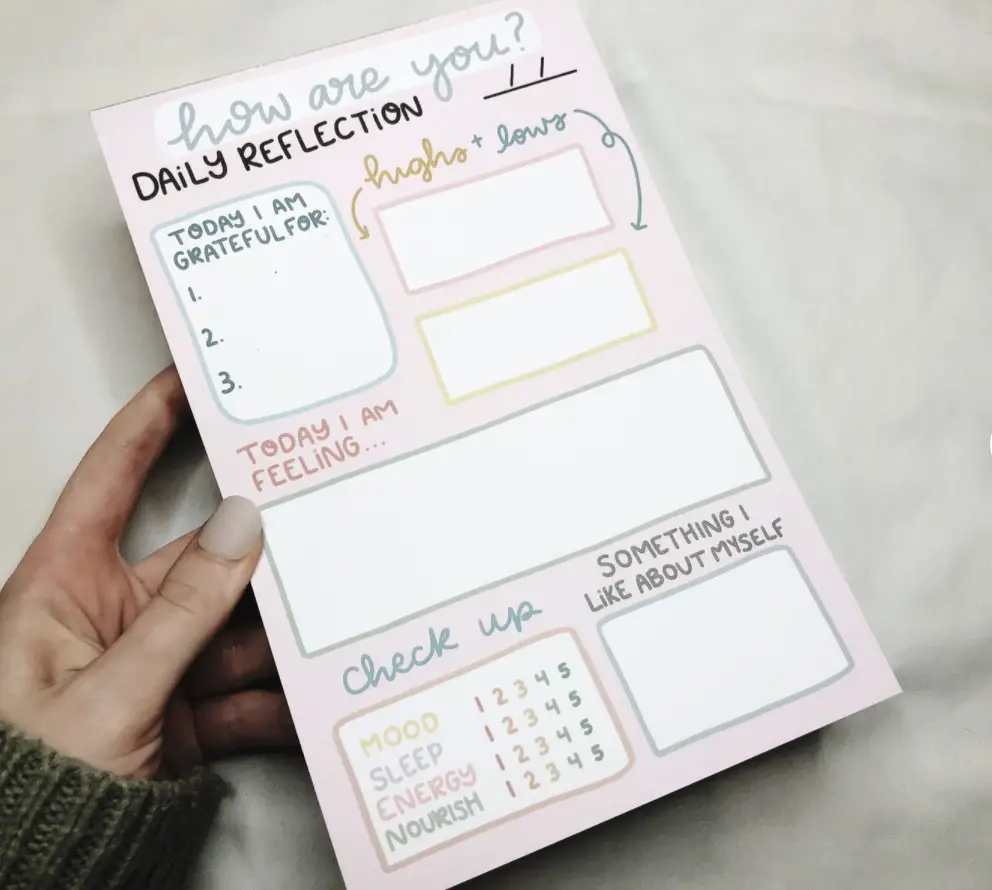 how are you?
DAiLY REFLECTiON
/ /
highs + lows
TODAY I AM
GRATEFUL FOR:
1.
2.
3.
TODAY I AM
FEELiNG...
SOMETHING I
LiKE ABOUT MYSELF
check up
MOOD 1 2 3 4 5
SLEEP 1 2 3 4 5
ENERGY 1 2 3 4 5
NOURISH 1 2 3 4 5